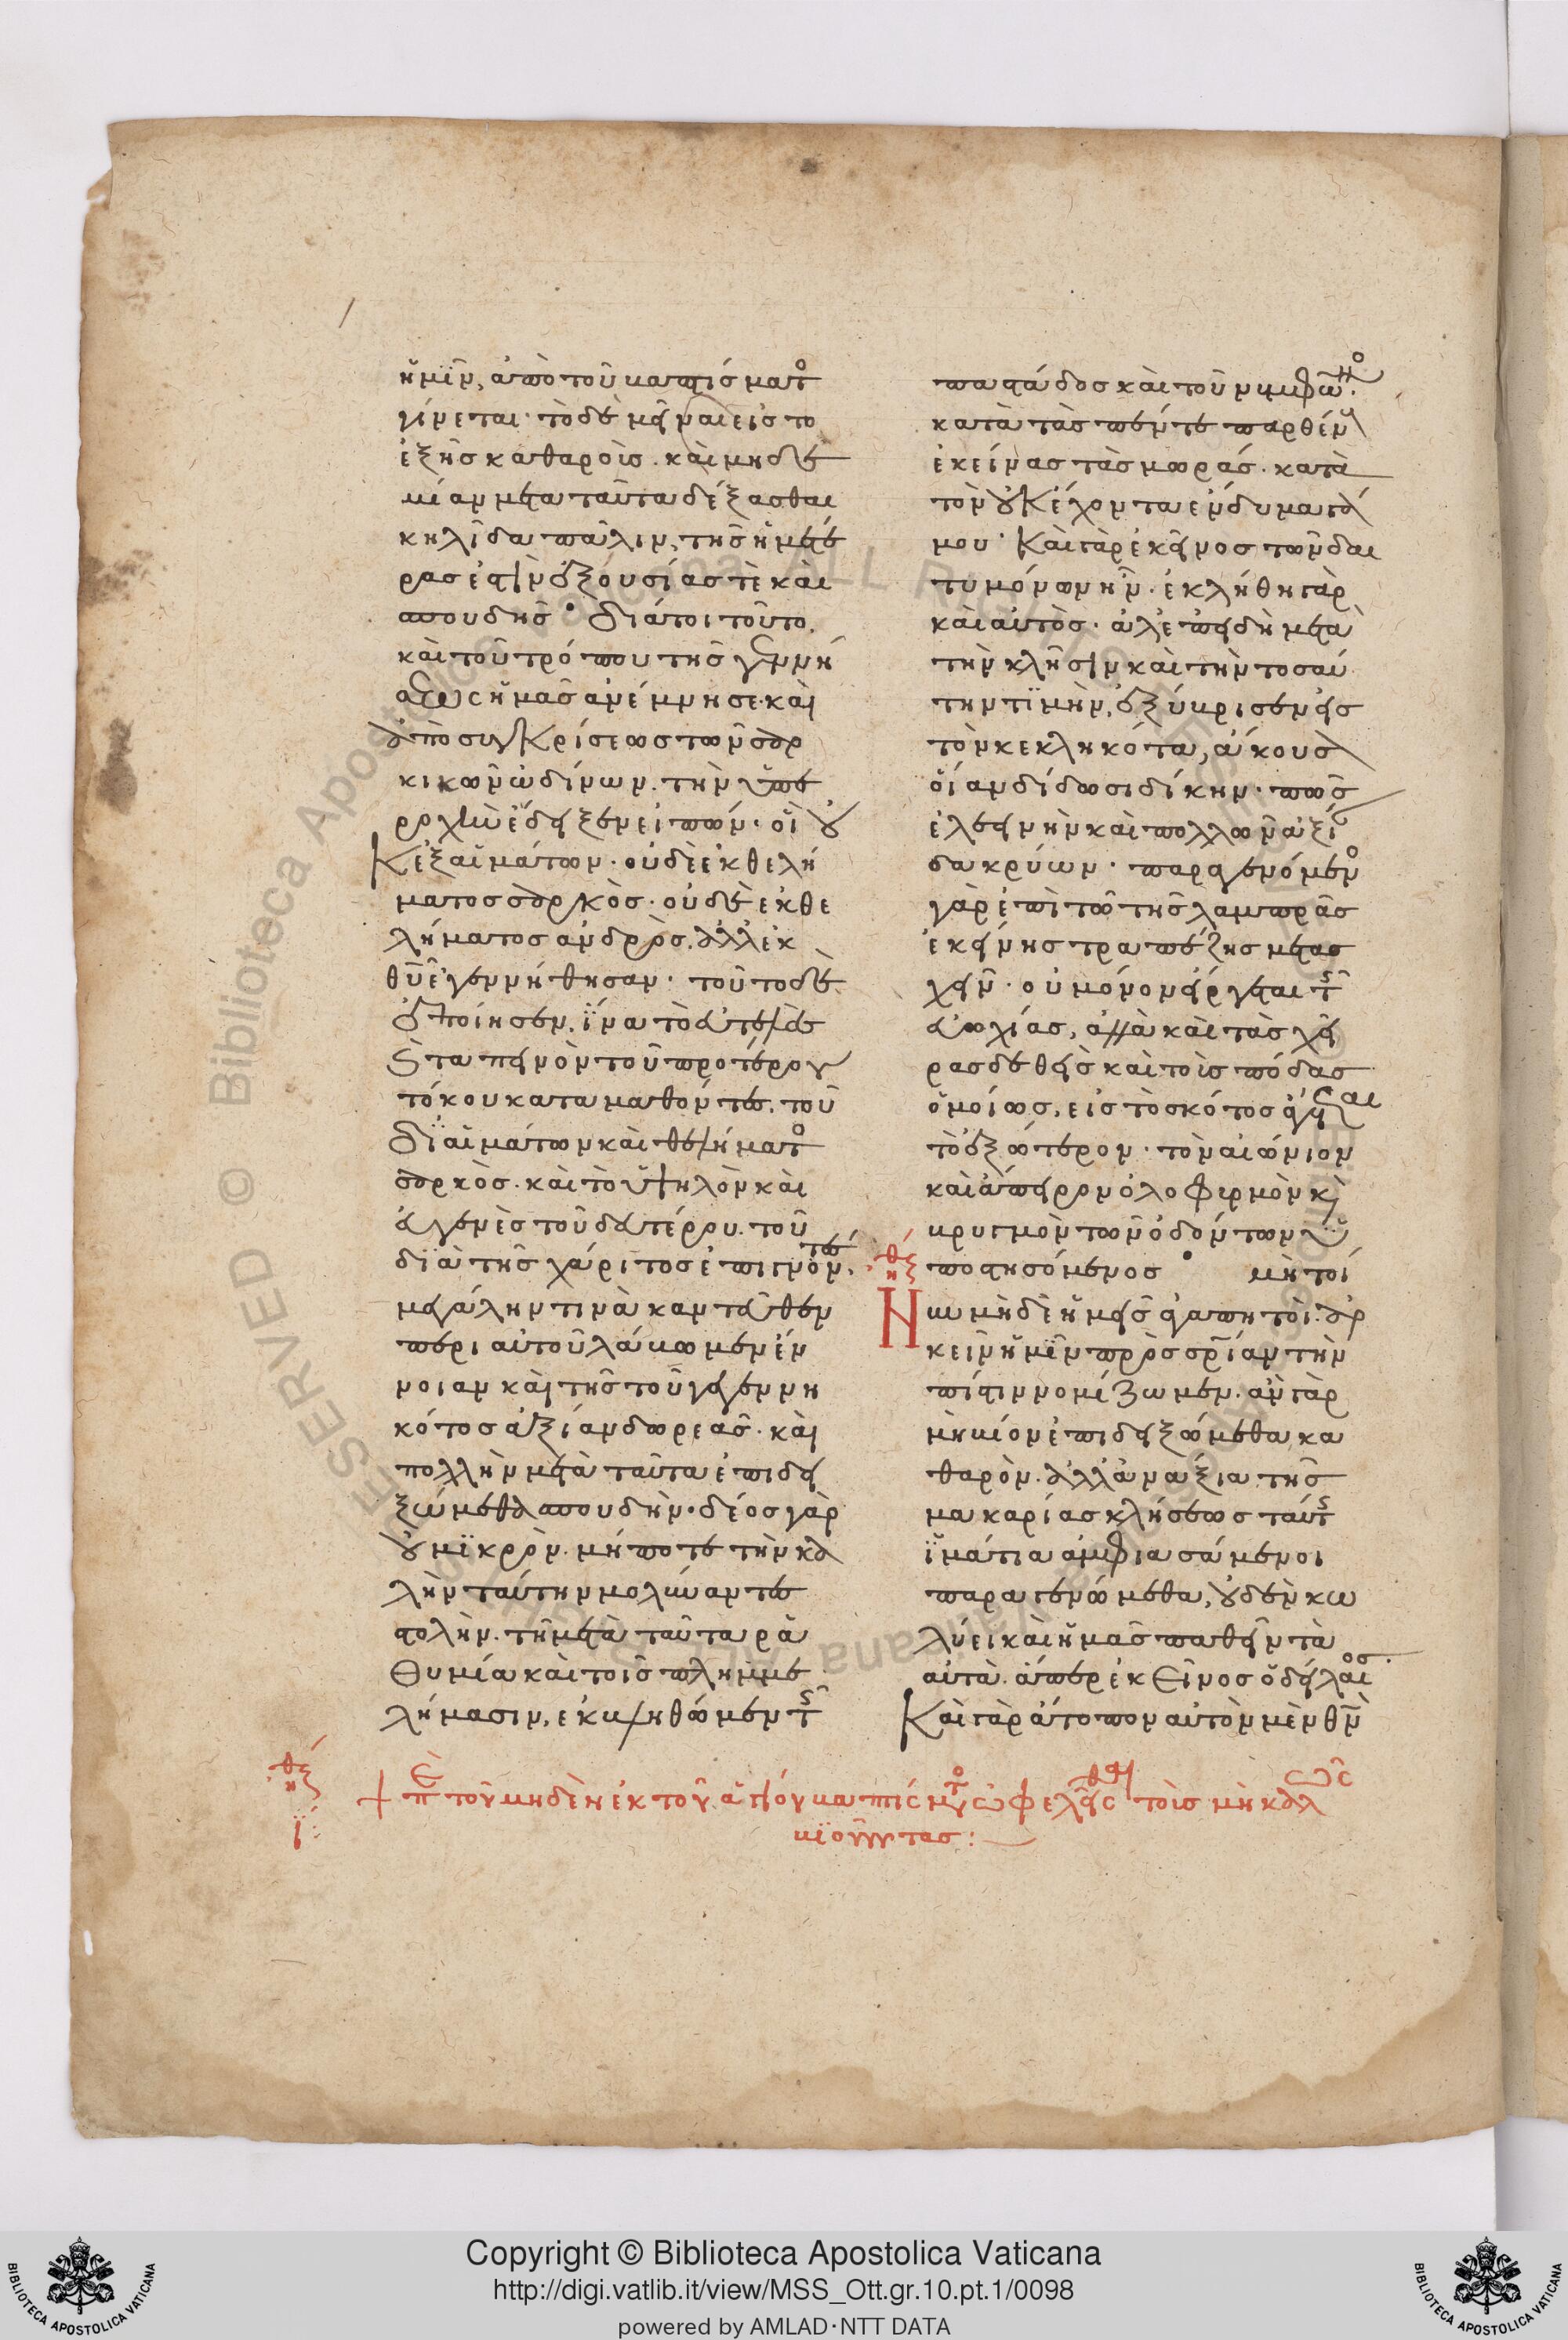 ἡμῖν, ἀπὸ τοῦ βαπτίσματο
γίνεται· τὸ δὲ μεῖναι εἰς τὸ
ἑξῆς καθαροῖς. καὶ μηδε
μίαν μετα ταῦτα δέξασθαι
κηλῖδα πάλιν, τῆς ἡμετέ
ρας ἐστὶν ἐξουσίας τὲ καὶ
σπουδῆς · Διάτοι τοῦτο,
καὶ τοῦ τρόπου τῆς γεννή
σεως ἡμᾶς ἀνέμνησε. καὶ
ἀπὸ συγκρίσεως τῶν σαρ
κικῶν ὠδίνων. τὴν ὑπε
ροχὴν ἔδειξεν εἰπών· οἳ οὐ
κ ἐξ αἱμάτων· οὐδὲ ἐκ θελή
ματος σαρκὸς· οὐδὲ ἐκ θε
λήματος ἀνδρὸς. ἀλλ ἐκ
θῡ ἐγεννήθησαν· τοῦτο δὲ
ἐποίησεν, ἵνα τὸ εὐτελὲς
ϛ ταπεινὸν τοῦ προτέρου
τόκου καταμαθόντες. τοῦ
δι αἱμάτων καὶ θελήματο
σαρκὸς. καὶ τὸ ὑψηλὸν καὶ
εὐγενὲς τοῦ δευτέρου. τοῦ
διὰ τῆς χάριτος ἐπιγνόντες,
μεγάλην τινὰ κἀντεῦθεν
περι αὐτοῦ λάβωμεν ἔν
νοιαν καὶ τῆς τοῦ γεγεννη
κότος ἀξίαν δωρεᾶς. καὶ
πολλὴν μετὰ ταῦτα ἐπιδει
ξώμεθα σπουδὴν. δέος γὰρ
οὐ μϊκρὸν. μήποτε τὴν κα
λὴν ταύτην μολύναντες
στολὴν. τῆ μετὰ ταῦτα ρα
θυμία καὶ τοῖς πλημμε
λήμασιν, ἐκβληθῶμεν τῆς
παστάδος καὶ τοῦ νυμφῶνο.
κατὰ τὰς πέντε παρθένους
ἐκείνας τὰς μωράς. κατὰ
τὸν οὐκ ἔχοντα ἔνδυμα γά
μου· Καὶ γὰρ ἐκεῖνος τῶν δαι
τυμόνων ἦν. ἐκλήθη γὰρ
καὶ αὐτὸς. ἀλλ ἐπειδὴ μετὰ
τὴν κλῆσιν καὶ τὴν τοσαύ
την τϊμὴν, ἐξύβρισεν εἰς
τὸν κεκληκότα, ἄκουσα
οἵαν δίδωσι δίκην. πῶς
ἐλεεινὴν καὶ πολλῶν ἀξί
δακρύων. παραγενόμενο
γὰρ ἐπὶ τῶ τῆς λαμπρᾶς
ἐκείνης τραπέζης μετασ
χεῖν. οὐ μόνον εἴργεται τῆς
εὐωχίας, ἀλλὰ καὶ τὰς χεῖ
ρας δεθεὶς καὶ τοὺς πόδας
ὁμοίως, εἰς τὸ σκότος ἄγεται
τὸ ἐξώτερον. τὸν αἰώνιον
καὶ ἄπειρον ὀλοφυρμὸν καὶ
βρυγμὸν τῶν ὀδόντων ὑ
ποστησόμενος · μὴ τοί
Νυν μηδὲ ἡμεῖς ἀγαπητοὶ. ἀρ
κεῖν ἡμῖν πρὸς σρίαν τὴν
πίστιν νομίζωμεν. ἂν γὰρ
μὴ βίον ἐπιδειξώμεθα κα
θαρὸν. ἀλλ ἀνάξια τῆς
μακαρίας κλήσεως ταύτης
ἱμάτια ἀμφιασάμενοι
παραγενώμεθα, οὐδὲν κω
λύει καὶ ἡμᾶς παθεῖν τὰ
αὐτὰ. ἅπερ ἐκεῖνος ὁ δείλαιος.
Καὶ γὰρ ἄτοπον αὐτὸν μὲν θν
Copyright © Biblioteca Apostolica Vaticana
http://digi.vatlib.it/view/MSS_Ott.gr.10.pt.1/0098
powered by AMLAD·NTT DATA